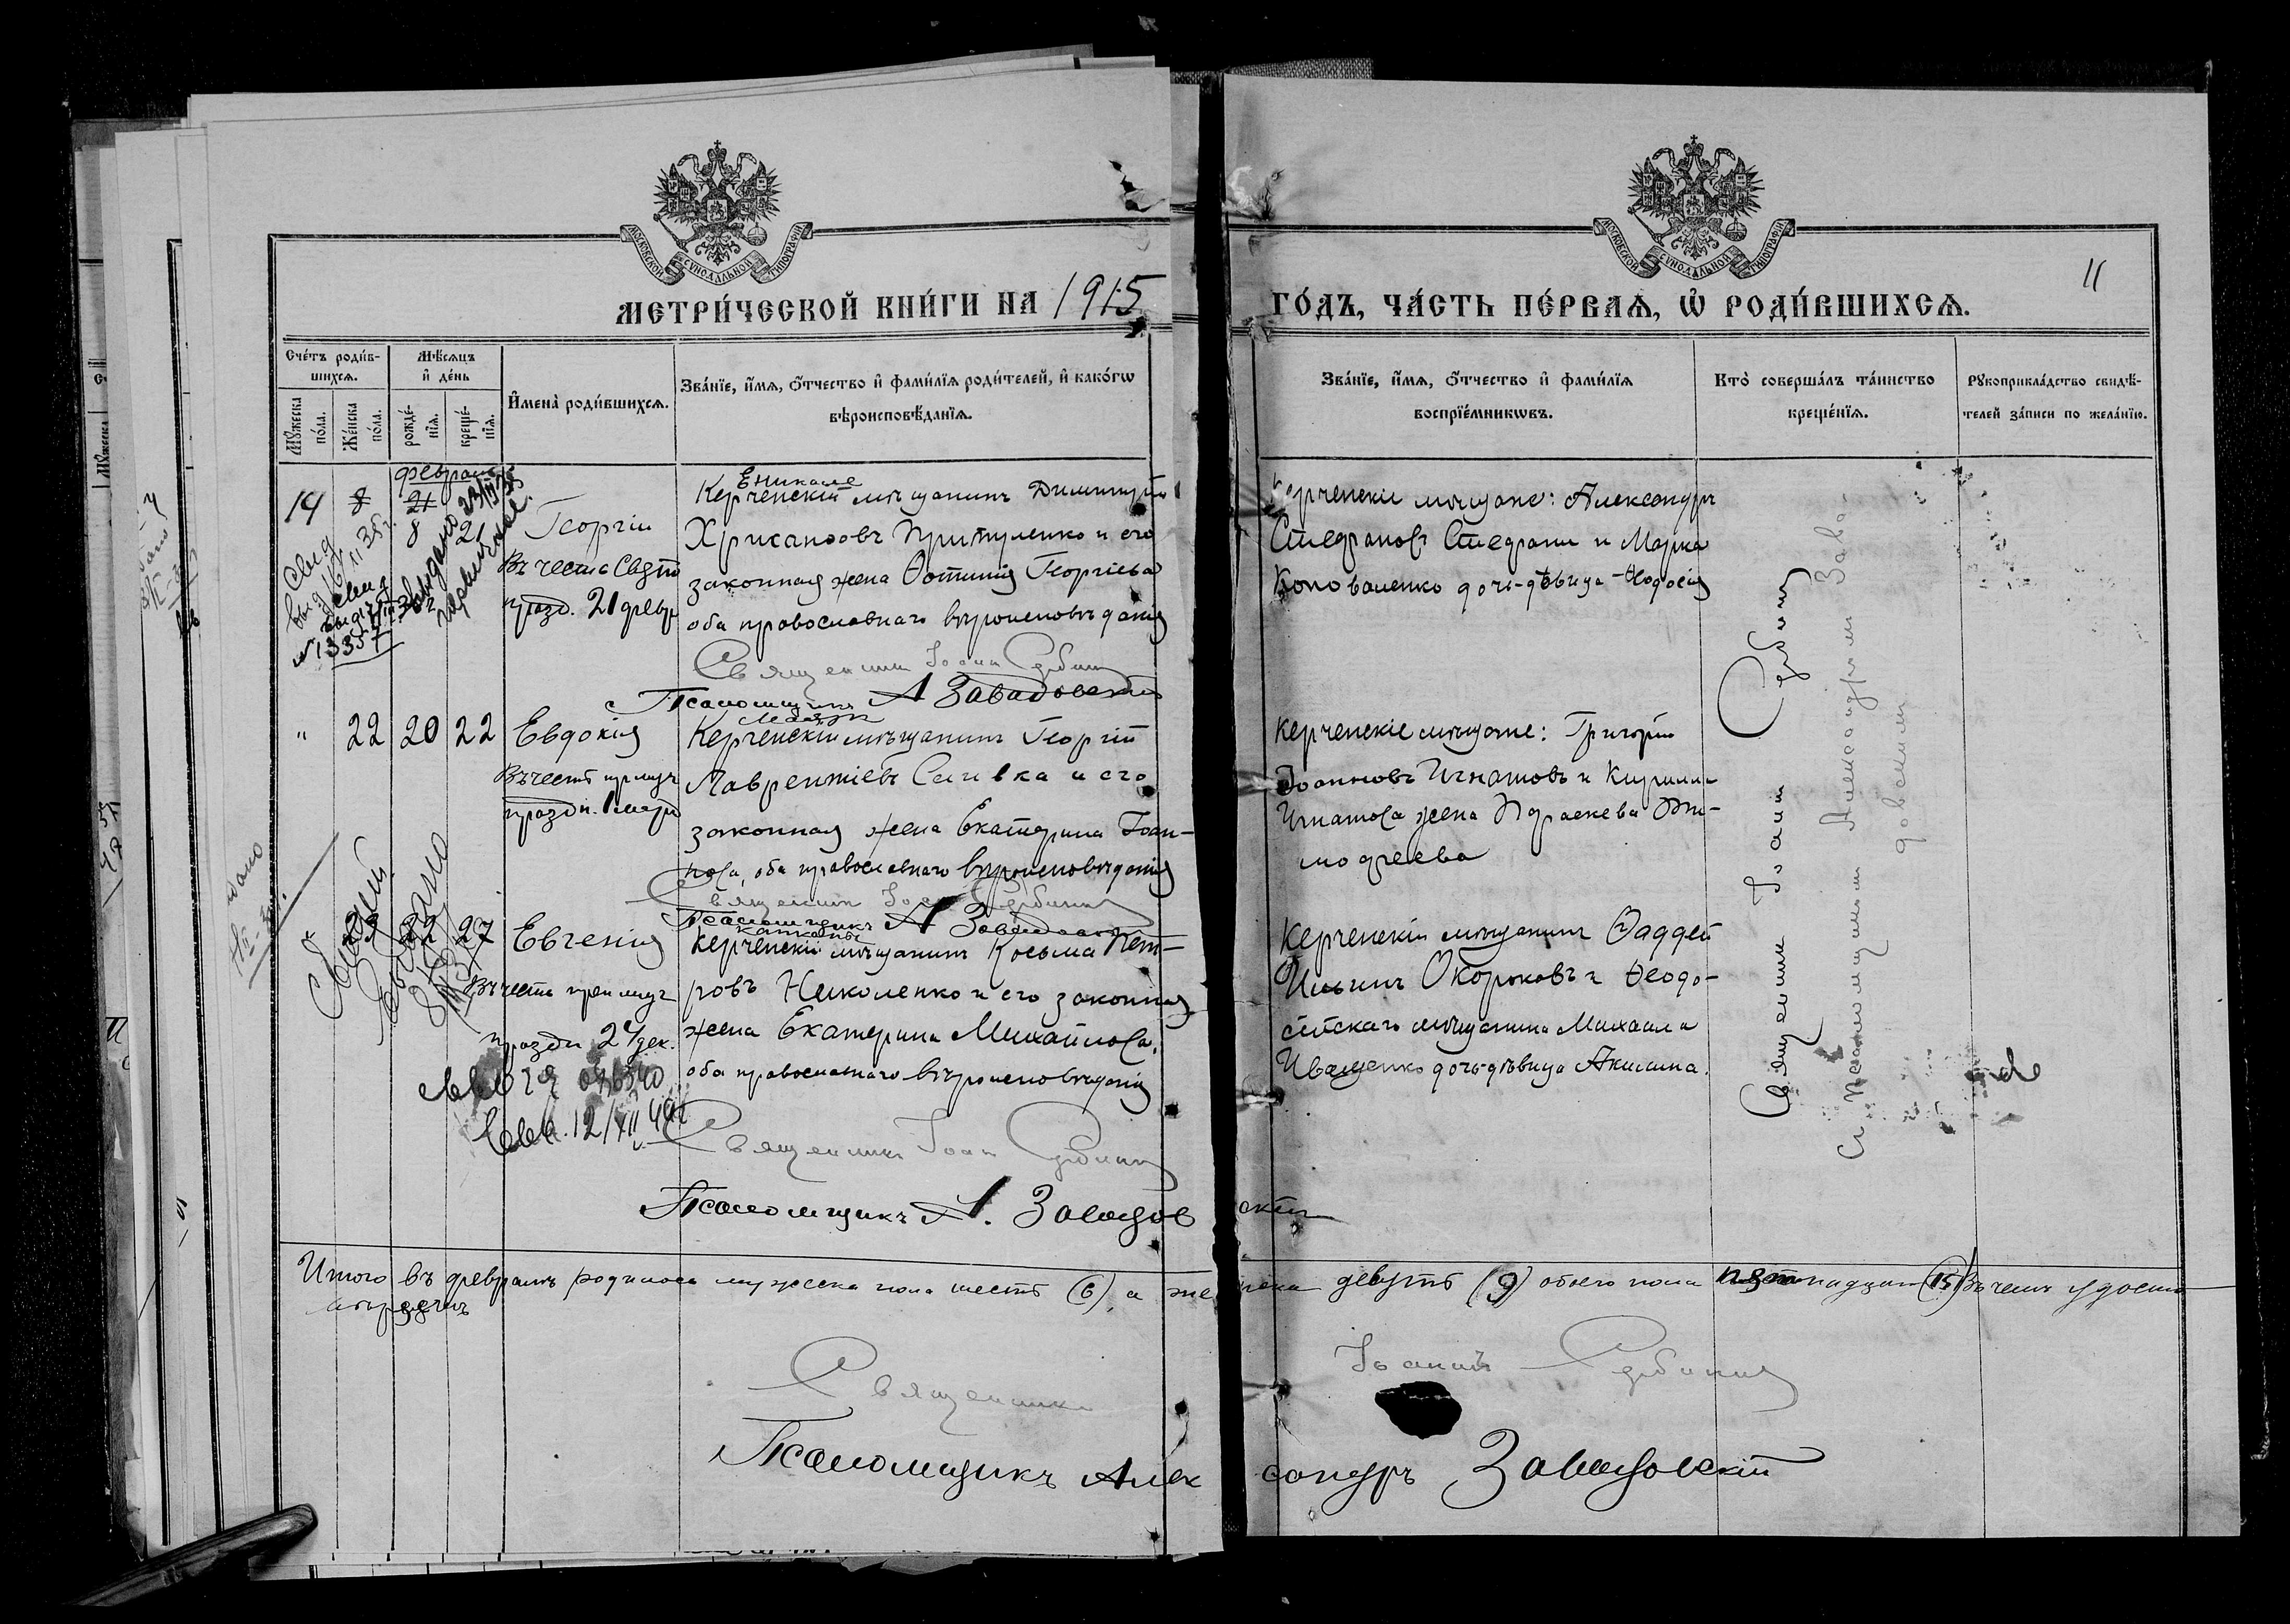 МОСКОВСКОЙ СѴНОДАЛЬНОЙ ТИПОГРАФІИ
МОСКОВСКОЙ СѴНОДАЛЬНОЙ ТИПОГРАФІИ
11
МЕТРИ́ЧЕСКОЙ КНИ́ГИ НА 1915
ГО́ДЪ, ЧА́СТЬ ПЕ́РВАѦ, Ѡ҆ РОДИ́ВШИХСѦ.
Сче́тъ роди́в-
шихсѧ.
Мꙋ́жеска по́ла.
Же́нска по́ла.
Мѣ́сѧцъ
и҆ де́нь
рожде́-
нїѧ.
креще́-
нїѧ.
И҆мена̀ роди́вшихсѧ.
Зва́нїе, и҆́мѧ, ѻ҆́тчество и҆ фами́лїѧ роди́телей, и҆ како́гѡ
вѣроисповѣ́данїѧ.
Зва́нїе, и҆́мѧ, ѻ҆́тчество и҆ фами́лїѧ
воспрїе́мникѡвъ.
Кто̀ соверша́лъ та́инство
креще́нїѧ.
Рꙋкоприкла́дство свидѣ́-
телей за́писи по жела́нїю.
февраль
14 8 21
8 21
Георгій
Въ честь Свят
празд. 21 февр
Еникале
Керченскій мѣщанинъ Димитрій
Хрисанѳовъ Притуленко и его
законная жена Фотинія Георгіева
оба православнаго вѣроисповѣданія
Священникъ Іоаннъ Сербинъ
Псаломщикъ А Завадовскій
Керченскіе мѣщане: Александръ
Стефановъ Стефани и Марка
Коноваленко дочь-дѣвица Ѳеодосія
№13357
" 22 20 22
Евдокія
Въ честь прмуч
праздн. 1 мар
Маяк
Керченскій мѣщанинъ Георгій
Лаврентіевъ Сливка и его
законная жена Екатерина Іоан-
нова, оба православнаго вѣроисповѣданія
Священникъ Іоаннъ Сербинъ
Псаломщикъ А Завадовскій
Керченскіе мѣщане: Григорій
Іоанновъ Игнатовъ и Кирилла
Игнатова жена Параскева Ти-
моѳеева
23 22 27
Евгенія
Въ честь препмуч
праздн 24 дек.
Керченскій мѣщанинъ Косьма Пет-
ровъ Николенко и его законная
жена Екатерина Михайлова,
оба православнаго вѣроисповѣданія
Священникъ Іоаннъ Сербинъ
Псаломщикъ А. Завадовскій
Керченскій мѣщанинъ Ѳаддей
Ильинъ Окороковъ и Ѳеодо-
сійскаго мѣщанина Михаила
Иващенко дочь-дѣвица Акилина.
Священникъ Іоаннъ Сербинъ
Съ Псаломщикомъ Александромъ Зава-
довскимъ
Итого въ февралѣ родилось мужеска пола шесть (6), а женска девять (9) обоего пола пятнадцать (15) Въ чемъ удосто-
вѣряемъ
Священникъ Іоаннъ Сербинъ
Псаломщикъ Александръ Завадовскій